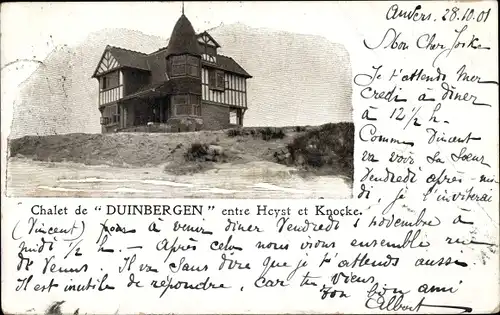 Anvers, 28.10.01
Mon Cher Joska
Je t'attends Mer
credi à dîner
à 12 ½ h.
Comme Vincent
va voir sa sœur
Vendredi après-mi
di, je l'inviterai
Chalet de "DUINBERGEN" entre Heyst et Knocke.
(Vincent) pour à venir dîner Vendredi 1 novembre à
midi ½ h. — Après cela nous irons ensemble rue
de Venus. Il va sans dire que je t'attends aussi.
Il est inutile de répondre, car tu viens.
Ton bon ami
Albert